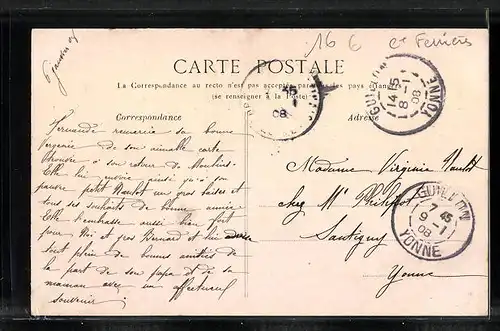 16 6
CARTE POSTALE
La Correspondance au recto n'est pas acceptée par tous les pays étrangers
(se renseigner à la Poste)
Correspondance
Adresse
Fernande remercie sa bonne
Virginie de son aimable carte
à son retour de Moulins
Elle lui envoie ainsi qu'à son
pauvre petit un gros baiser et
tous ses souhaits de bonne année
Elle t'embrasse aussi bien fort
pour toi et gros Bernard et lui
tout plein de bonnes amitiés de
la part de son papa et de sa
maman avec un affectueux
souvenir
Madame Virginie
chez Mr Philippot
Santigny
Yonne
45
08
GUILLON
14 15
8 -1
08
YONNE
GUILLON
7 45
9 -1
08
YONNE